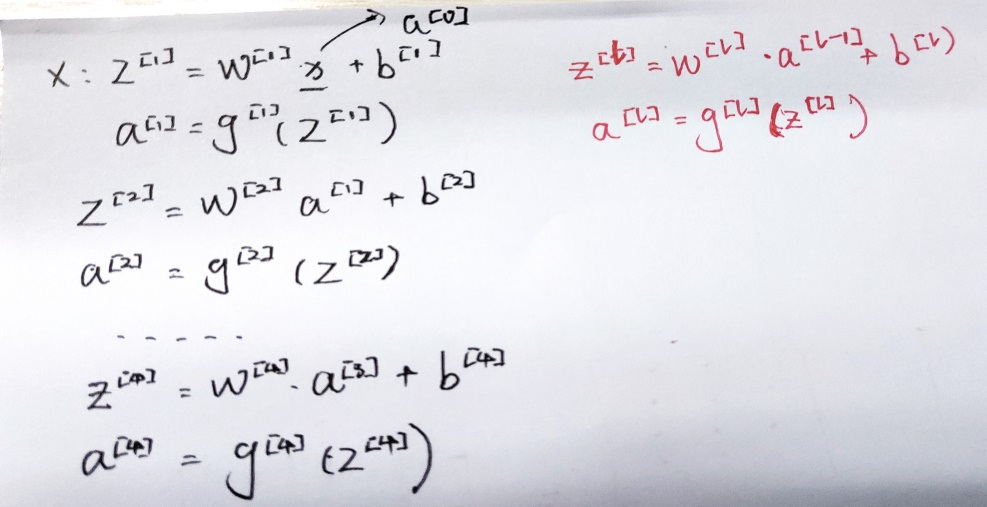 a[0]
x: z[1] = w[1] x + b[1]
a[1] = g[1](z[1])
z[2] = w[2] a[1] + b[2]
a[2] = g[2] (z[2])
- - - - -
z[4] = w[4]. a[3] + b[4]
a[4] = g[4] (z[4])
z[l] = w[l] · a[l-1] + b[l)
a[l] = g[l] (z[l])